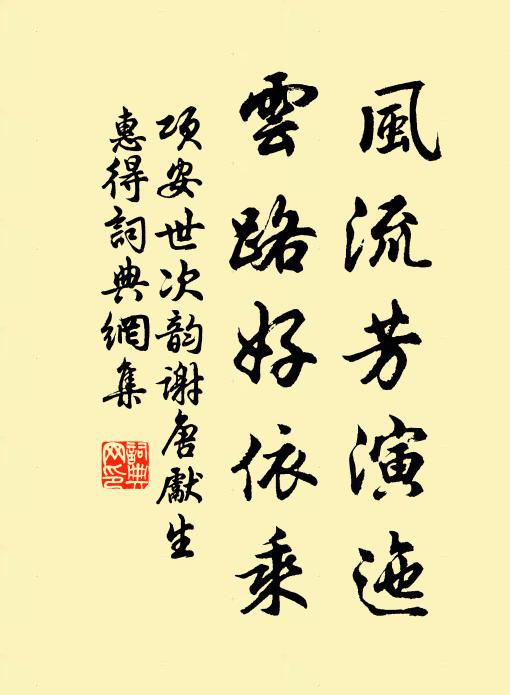 風流芳演迤
雲路好依乘
項安世次韵謝唐獻生
惠得詞典網集
詞典網印